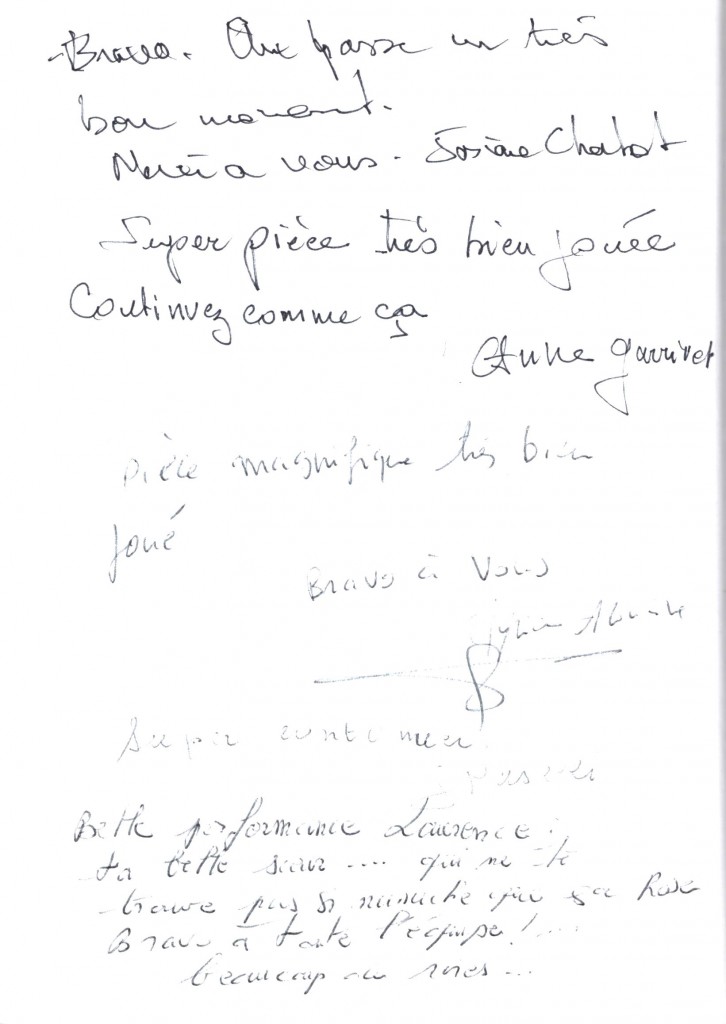 - Bravo. On a passé un très
bon moment.
Merci a vous. Josiane Chabot
Super pièce très bien jouée
Continuez comme ça
Anne Garrivet
pièce magnifique très bien
joué
Bravo à Vous
Super continuer
Belle performance Laurence !
ta belle sœur .... qui ne te
trouve pas si nunuche que ça
Bravo à toute l'équipe ! ....
beaucoup de rires ...